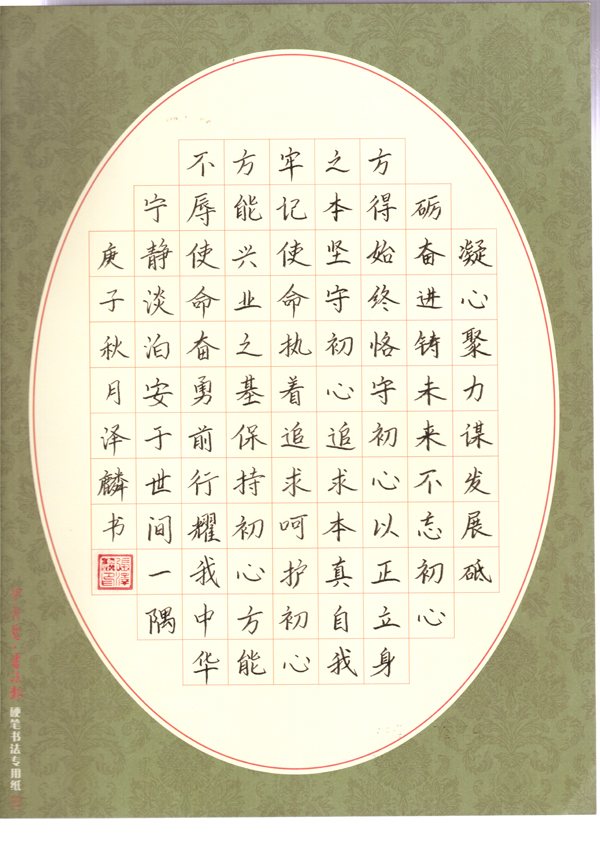 凝心聚力谋发展砥
砺奋进铸未来不忘初心
方得始终恪守初心以正立身
之本坚守初心追求本真自我
牢记使命执着追求呵护初心
方能兴业之基保持初心方能
不辱使命奋勇前行耀我中华
宁静淡泊安于世间一隅
庚子秋月泽麟书
硬笔书法专用纸